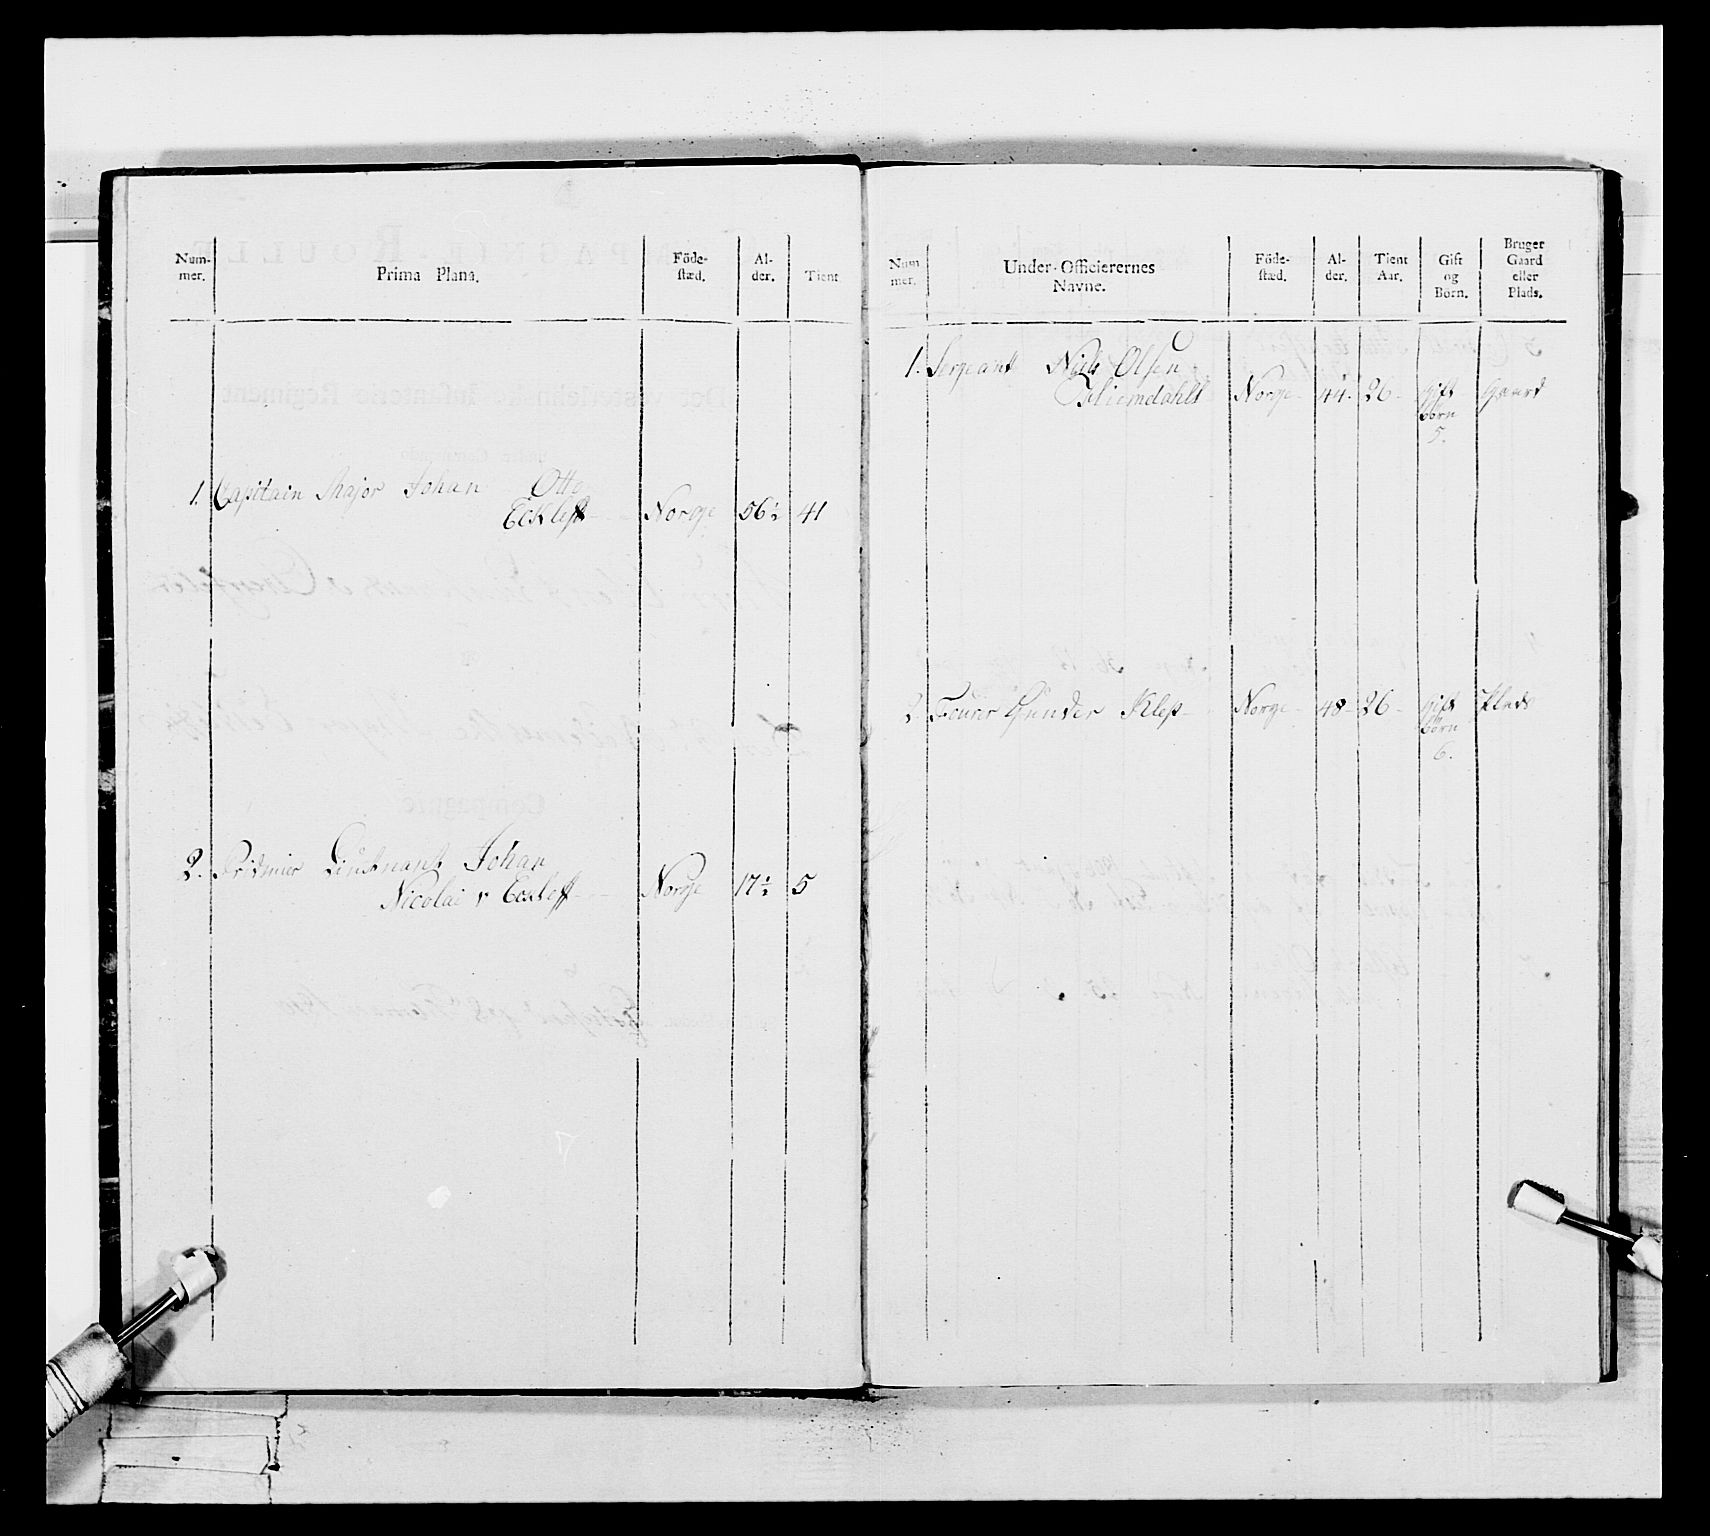 Num-
mer.
Prima Plana.
Föde-
stæd.
Al-
der.
Tient
1. Capitain Major Johan Otto
Norge 56½ 41
2. Lieutnant Johan
Nicolai v Eckleff Norge 17½ 5
Num
mer.
Under-Officierernes
Navne.
Föde-
stæd.
Al-
der.
Tient
Aar.
Gift
og
Börn.
Bruger
Gaard
eller
Plads.
1. Sergeant Niels Olsen
Norge 44. 26 Gift Gaard
Börn
5.
2. Fourer Gunder Klep Norge 48 26 Gift Plads
Börn
6.